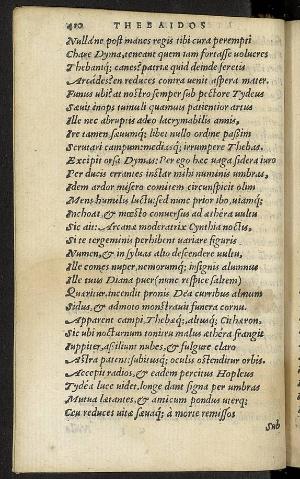 410 THEBAIDOS
Nullá ne post manes regis tibi cura perempti
Chare Dyma, teneant quem iam fortasse uolucres
Thebaniq; canes? patriæ quid deinde feretis
Arcades? en reduces contra uenit aspera mater,
Funus ubi? at nostro semper sub pectore Tydeus
Sæuit inops tumuli quamuis patientior artus
Ille nec abruptis adeo lacrymabilis annis,
Ire tamen sæuumq; libet nullo ordine passim
Scrutari campum: mediasq; irrumpere Thebas.
Excipit orsa Dymas: Per ego hæc uaga sidera iuro
Per ducis errantes instar mihi numinis umbras,
Idem ardor misero comitem circunspicit olim
Mens humilis luctu: sed nunc prior ibo, uiamq;
Inchoat, & mœsto conuersus ad æthera uultu
Sic ait: Arcanæ moderatrix Cynthia noctis,
Si te tergeminis perhibent uariare figuris
Numen, & in syluas alio descendere uultu,
Ille comes nuper, nemorumq; insignis alumnus
Ille tuus Diana puer (nunc respice saltem)
Quæritur. incendit pronis Dea curribus almum
Sidus, & admoto monstrauit funera cornu.
Apparent campi, Thebæq;, altusq; Cithæron,
Sic ubi nocturnum tonitru malus æthera frangit
Iuppiter, assiliunt nubes, & fulgure claro
Astra patent: subitusq; oculis ostenditur orbis.
Accepit radios, & eadem percitus Hopleus
Tydéa luce uidet, longe dant signa per umbras
Mutua lætantes, & amicum pondus uterq;
Ceu reduces uitæ sæuaq; à morte remissos
Sub